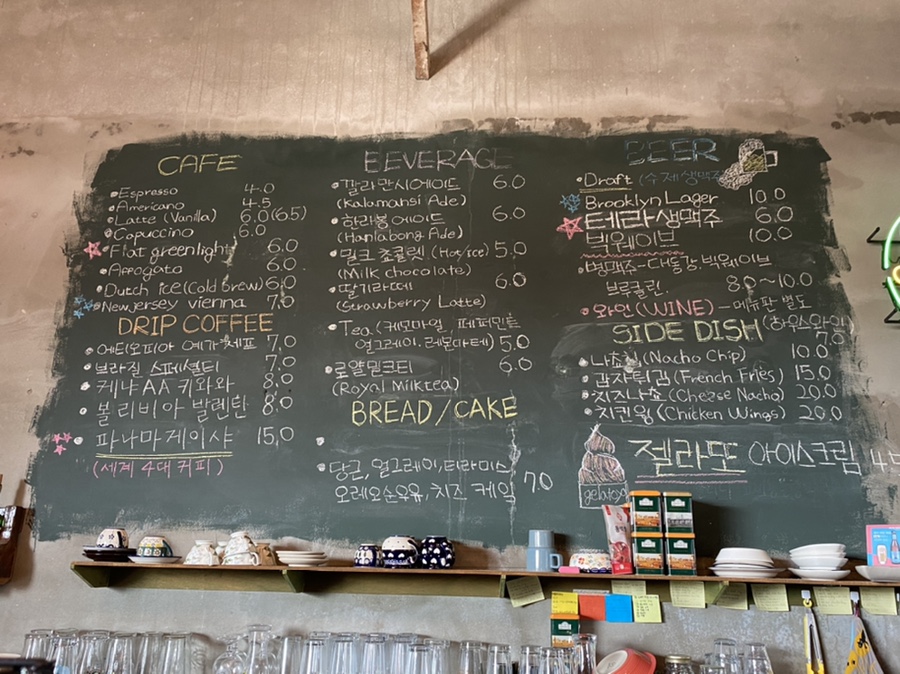 CAFE
Espresso 4.0
Americano 4.5
Latte (Vanilla) 6.0 (6.5)
Capuccino 6.0
Flat greenlight 6.0
Affogato 6.0
Dutch ice (Cold brew) 6.0
New jersey vienna 7.0
DRIP COFFEE
에티오피아 예가체프 7.0
브라질 스페셜티 7.0
케냐 AA 키와와 8.0
볼리비아 발렌틴 8.0
파나마 게이샤 15.0
(세계 4대 커피)
BEVERAGE
깔라만시에이드 6.0
(Kalamansi Ade)
한라봉 에이드 6.0
(Hanlabong Ade)
밀크 쵸콜렛 (Hot/ice) 5.0
(Milk chocolate)
딸기라떼 6.0
(Strawberry Latte)
Tea (케모마일, 페퍼민트
얼그레이, 레몬마테) 5.0
로얄밀크티 6.0
(Royal Milktea)
BREAD/CAKE
당근, 얼그레이, 티라미스
오레오순우유, 치즈 케잌 7.0
BEER
Draft (수제생맥주
Brooklyn Lager 10.0
테라 생맥주 6.0
빅웨이브 10.0
병맥주-대동강, 빅웨이브
브루클린 8.0~10.0
와인 (WINE) - 메뉴판 별도
(하우스와인
7.0
SIDE DISH
나쵸칩 (Nacho Chip) 10.0
감자튀김 (French Fries) 15.0
치즈나쵸 (Cheese Nacho) 20.0
치킨윙 (Chicken Wings) 20.0
젤라또 아이스크림
gelato